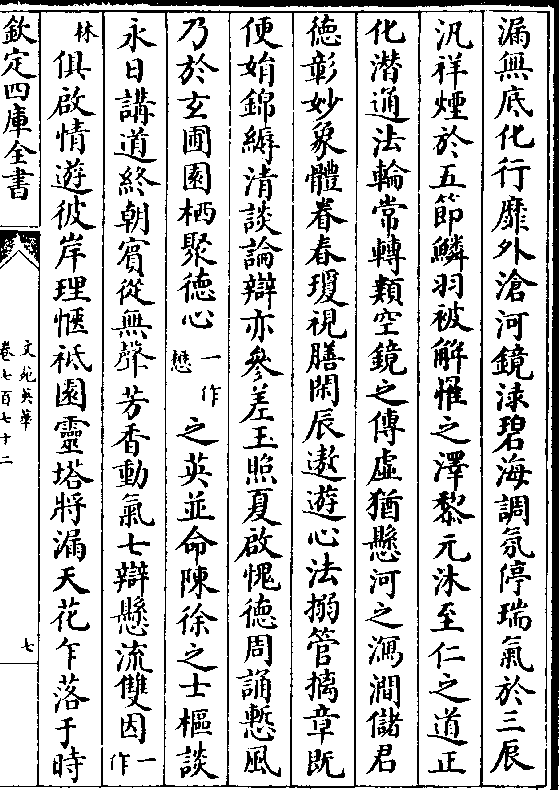 漏無底化行靡外滄河鏡淥碧海調氛停瑞氣於三辰
汎祥煙於五節鱗羽被解䍐之澤黎元沐至仁之道正
化潛通法輪常轉類空鏡之傳虛猶懸河之瀉澗儲君
德彰妙象體眷春瓊視膳閑辰遨遊心法搦管摛章既
便娟錦縟清談論辯亦參差玉照夏啟愧德周誦慙風
乃於玄圃園栖聚德心一作懋之英並命陳徐之士樞談
永日講道終朝賓從無聲芳香動氣七辯懸流雙因一作
林俱啟情遊彼岸理愜祗園靈塔將漏天花乍落于時
欽定四庫全書
文苑英華
卷七百七十二
七